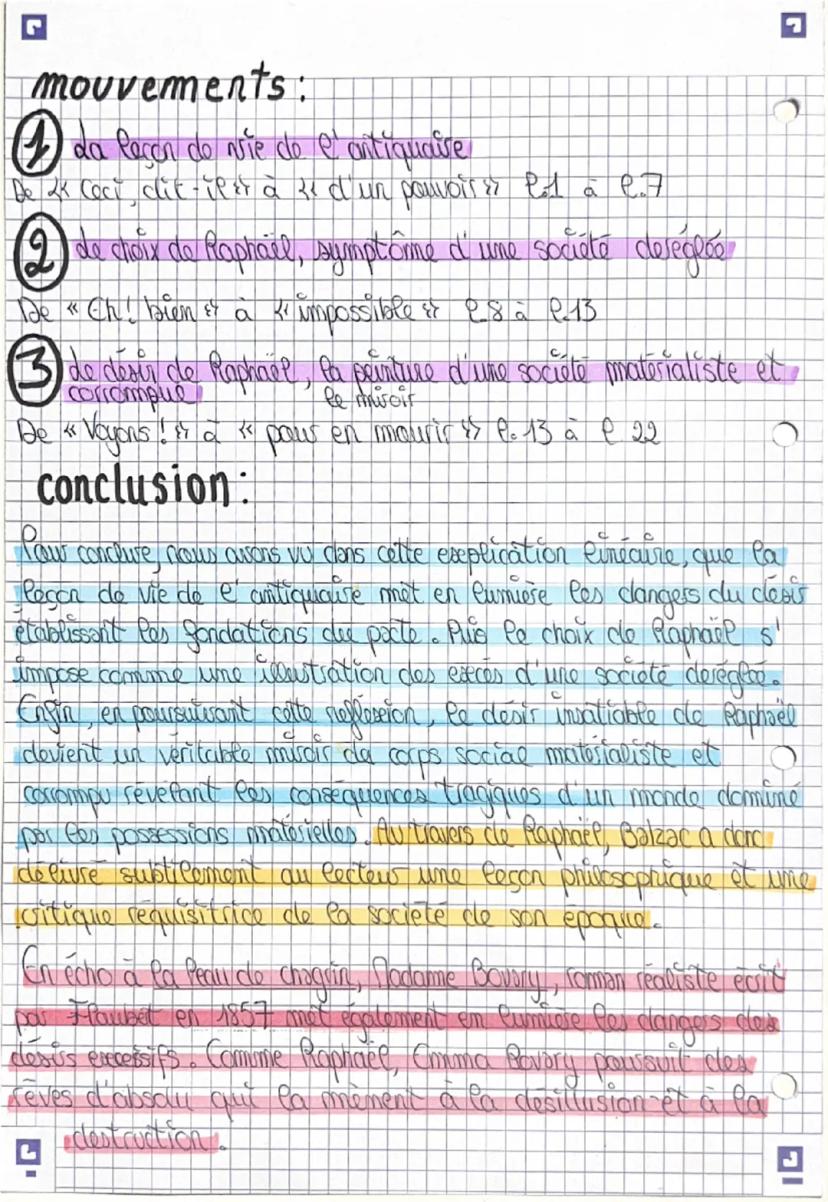 mouvements :
1 La leçon de vie de l'antiquaire
De « Ceci, dit-il » à « d'un pouvoir » l.1 à l.7
2 Le choix de Raphaël, symptôme d'une société deréglée
De « Eh! bien » à « impossible » l 8 à l.13
3 Le désir de Raphaël, la peinture d'une société matérialiste et
corrompue le miroir
De « Voyons ! » à « pour en mourir » l. 13 à l 22
conclusion :
Pour conclure, nous avons vu dans cette explication linéaire, que la
leçon de vie de l'antiquaire met en lumière les dangers du désir
établissant les fondations du pacte. Puis le choix de Raphaël s'
impose comme une illustration des excès d'une société deréglée.
Enfin, en poursuivant cette réflexion, le désir insatiable de Raphaël
devient un véritable miroir du corps social matérialiste et
corrompu révélant les conséquences tragiques d'un monde dominé
par les possessions matérielles. Au travers de Raphaël, Balzac a donc
délivré subtilement au lecteur une leçon philosophique et une
critique réquisitrice de la société de son époque.
En écho à La Peau de chagrin, Madame Bovary, roman réaliste écrit
par Flaubert en 1857 met également en lumière les dangers des
désirs excessifs. Comme Raphaël, Emma Bovary poursuit des
rêves d'absolu qui la mènent à la désillusion et à la
destruction.